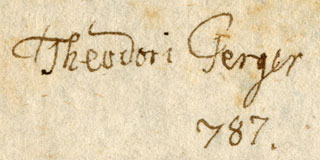 Theodori Gerger
787.